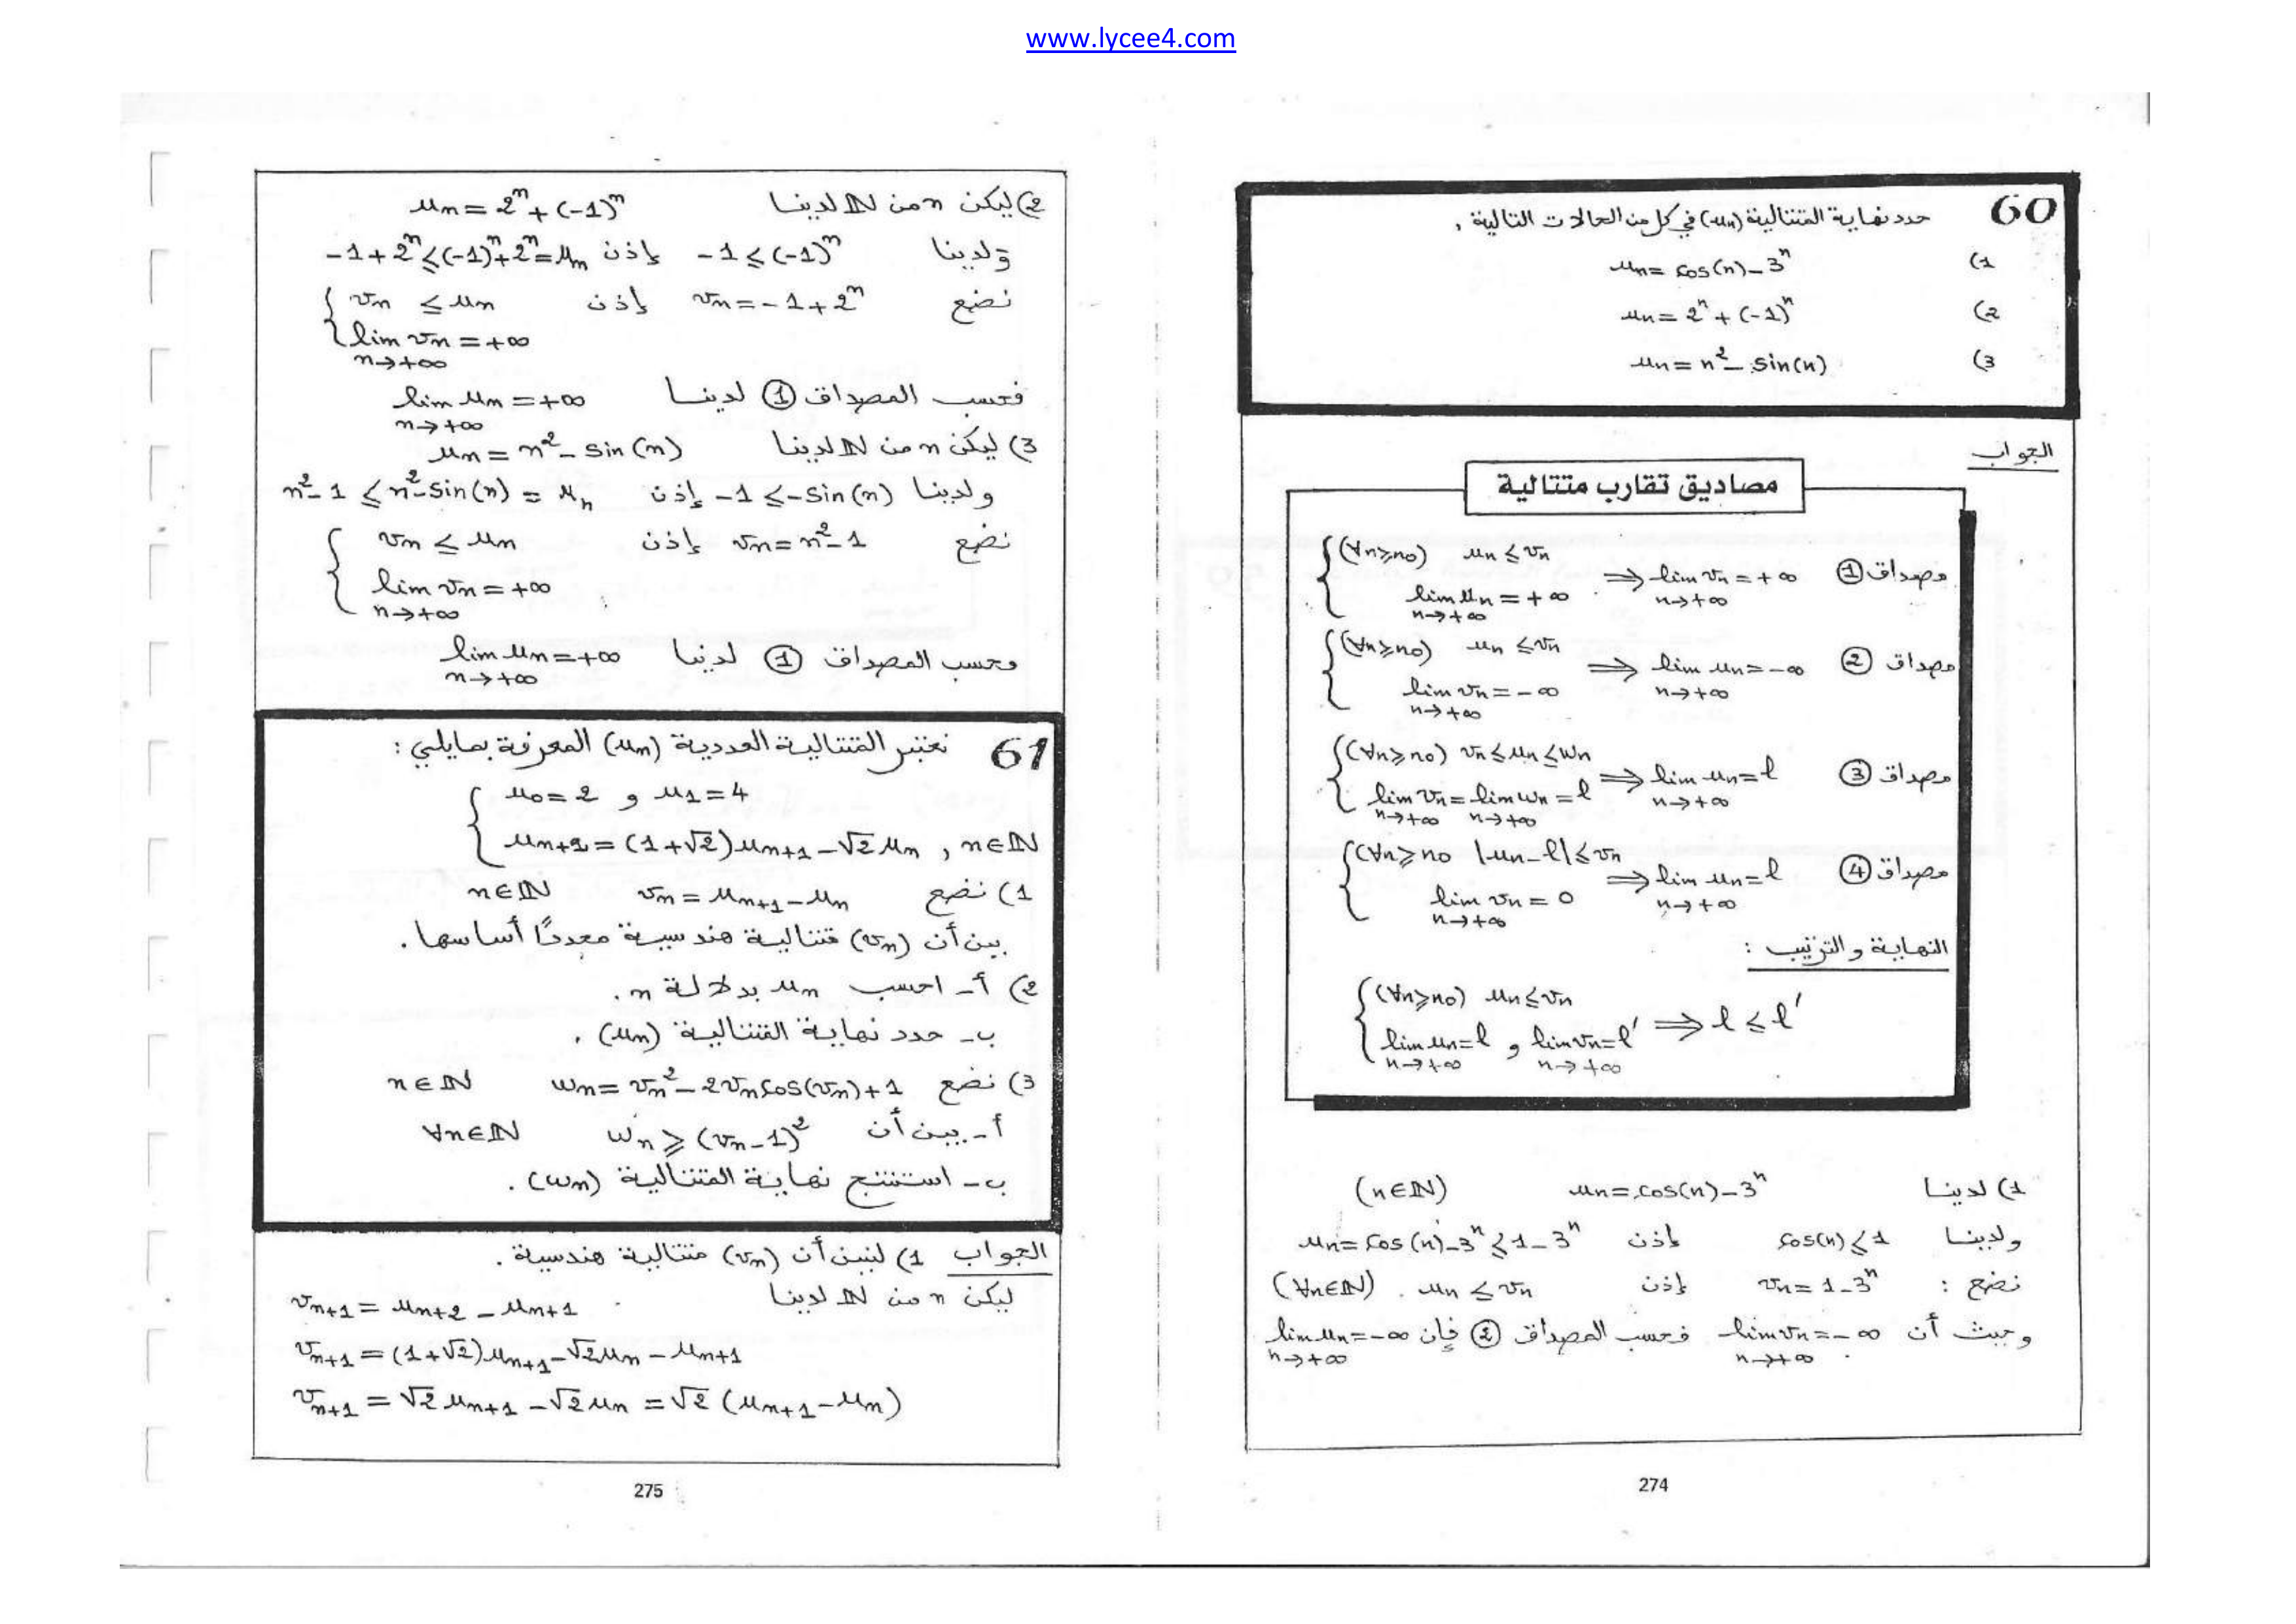 www.lycee4.com
60 حدد نهاية المتتالية (uₙ) في كل من الحالات التالية .
1) uₙ = cos(n) − 3ⁿ
2) uₙ = 2ⁿ + (−1)ⁿ
3) uₙ = n² − sin(n)
الجواب
مصاديق تقارب متتالية
مصداق ① { (∀n≥n₀) uₙ ≤ vₙ ; lim uₙ = +∞ n→+∞ ⟹ lim vₙ = +∞ n→+∞
مصداق ② { (∀n≥n₀) uₙ ≤ vₙ ; lim vₙ = −∞ n→+∞ ⟹ lim uₙ = −∞ n→+∞
مصداق ③ { (∀n≥n₀) vₙ ≤ uₙ ≤ wₙ ; lim vₙ = lim wₙ = l n→+∞ n→+∞ ⟹ lim uₙ = l n→+∞
مصداق ④ { (∀n≥n₀ |uₙ − l| ≤ vₙ ; lim vₙ = 0 n→+∞ ⟹ lim uₙ = l n→+∞
النهاية والترتيب :
{ (∀n≥n₀) uₙ ≤ vₙ ; lim uₙ = l و lim vₙ = l' n→+∞ n→+∞ ⟹ l ≤ l'
1) لدينا uₙ = cos(n) − 3ⁿ (n∈ℕ)
ولدينا cos(n) ≤ 1 إذن uₙ = cos(n) − 3ⁿ ≤ 1 − 3ⁿ
نضع : vₙ = 1 − 3ⁿ إذن uₙ ≤ vₙ . (∀n∈ℕ)
وحيث أن lim vₙ = −∞ n→+∞ فحسب المصداق ② فإن lim uₙ = −∞ n→+∞
274
2) ليكن n من ℕ لدينا uₙ = 2ⁿ + (−1)ⁿ
ولدينا −1 ≤ (−1)ⁿ إذن −1 + 2ⁿ ≤ (−1)ⁿ + 2ⁿ = uₙ
نضع vₙ = −1 + 2ⁿ إذن { vₙ ≤ uₙ
lim vₙ = +∞ n→+∞
فحسب المصداق ① لدينا lim uₙ = +∞ n→+∞
3) ليكن n من ℕ لدينا uₙ = n² − sin(n)
ولدينا −1 ≤ −sin(n) إذن n² − 1 ≤ n² − sin(n) = uₙ
نضع vₙ = n² − 1 إذن { vₙ ≤ uₙ
lim vₙ = +∞ n→+∞
وحسب المصداق ① لدينا lim uₙ = +∞ n→+∞
61 نعتبر المتتالية العددية (uₙ) المعرفة بمايلي :
{ u₀ = 2 و u₁ = 4
uₙ₊₂ = (1+√2)uₙ₊₁ − √2 uₙ , n∈ℕ
1) نضع vₙ = uₙ₊₁ − uₙ n∈ℕ
بين أن (vₙ) متتالية هندسية محددًا أساسها .
2) أ- احسب uₙ بدلالة n .
ب- حدد نهاية المتتالية (uₙ) .
3) نضع wₙ = vₙ² − 2vₙcos(vₙ) + 1 n∈ℕ
أ- بين أن wₙ ≥ (vₙ − 1)² ∀n∈ℕ
ب- استنتج نهاية المتتالية (wₙ) .
الجواب 1) لنبين أن (vₙ) متتالية هندسية .
ليكن n من ℕ لدينا vₙ₊₁ = uₙ₊₂ − uₙ₊₁
vₙ₊₁ = (1+√2)uₙ₊₁ − √2uₙ − uₙ₊₁
vₙ₊₁ = √2 uₙ₊₁ − √2 uₙ = √2 (uₙ₊₁ − uₙ)
275